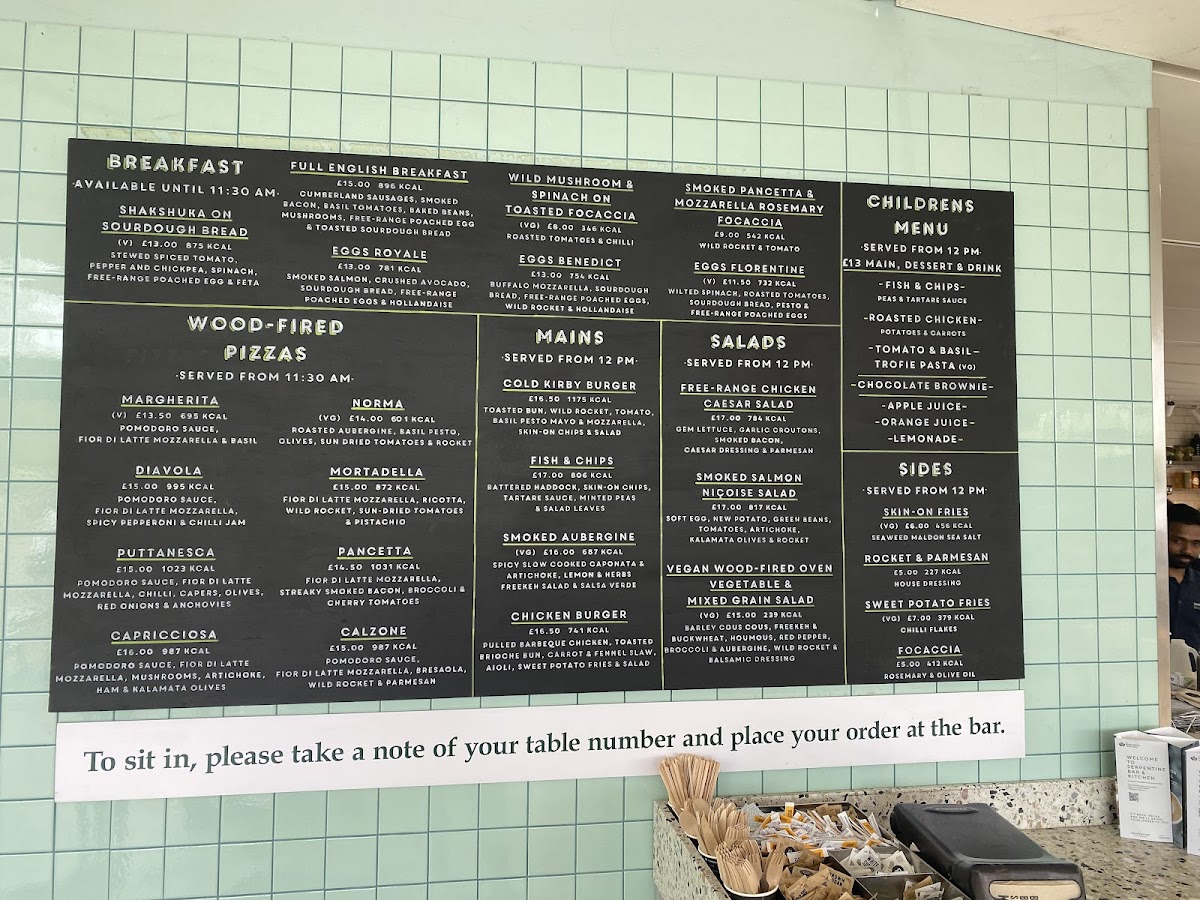 BREAKFAST
·AVAILABLE UNTIL 11:30 AM·
SHAKSHUKA ON
SOURDOUGH BREAD
(V) £13.00 875 KCAL
STEWED SPICED TOMATO,
PEPPER AND CHICKPEA, SPINACH,
FREE-RANGE POACHED EGG & FETA
FULL ENGLISH BREAKFAST
£15.00 896 KCAL
CUMBERLAND SAUSAGES, SMOKED
BACON, BASIL TOMATOES, BAKED BEANS,
MUSHROOMS, FREE-RANGE POACHED EGG
& TOASTED SOURDOUGH BREAD
EGGS ROYALE
£13.00 781 KCAL
SMOKED SALMON, CRUSHED AVOCADO,
SOURDOUGH BREAD, FREE-RANGE
POACHED EGGS & HOLLANDAISE
WILD MUSHROOM &
SPINACH ON
TOASTED FOCACCIA
(VG) £8.00 346 KCAL
ROASTED TOMATOES & CHILLI
EGGS BENEDICT
£13.00 754 KCAL
BUFFALO MOZZARELLA, SOURDOUGH
BREAD, FREE-RANGE POACHED EGGS,
WILD ROCKET & HOLLANDAISE
SMOKED PANCETTA &
MOZZARELLA ROSEMARY
FOCACCIA
£9.00 542 KCAL
WILD ROCKET & TOMATO
EGGS FLORENTINE
(V) £11.50 732 KCAL
WILTED SPINACH, ROASTED TOMATOES,
SOURDOUGH BREAD, PESTO &
FREE-RANGE POACHED EGGS
WOOD-FIRED
PIZZAS
·SERVED FROM 11:30 AM·
MARGHERITA
(V) £13.50 695 KCAL
POMODORO SAUCE,
FIOR DI LATTE MOZZARELLA & BASIL
DIAVOLA
£15.00 995 KCAL
POMODORO SAUCE,
FIOR DI LATTE MOZZARELLA,
SPICY PEPPERONI & CHILLI JAM
PUTTANESCA
£15.00 1023 KCAL
POMODORO SAUCE, FIOR DI LATTE
MOZZARELLA, CHILLI, CAPERS, OLIVES,
RED ONIONS & ANCHOVIES
CAPRICCIOSA
£16.00 987 KCAL
POMODORO SAUCE, FIOR DI LATTE
MOZZARELLA, MUSHROOMS, ARTICHOKE,
HAM & KALAMATA OLIVES
NORMA
(VG) £14.00 601 KCAL
ROASTED AUBERGINE, BASIL PESTO,
OLIVES, SUN DRIED TOMATOES & ROCKET
MORTADELLA
£15.00 872 KCAL
FIOR DI LATTE MOZZARELLA, RICOTTA,
WILD ROCKET, SUN-DRIED TOMATOES
& PISTACHIO
PANCETTA
£14.50 1031 KCAL
FIOR DI LATTE MOZZARELLA,
STREAKY SMOKED BACON, BROCCOLI &
CHERRY TOMATOES
CALZONE
£15.00 987 KCAL
POMODORO SAUCE,
FIOR DI LATTE MOZZARELLA, BRESAOLA,
WILD ROCKET & PARMESAN
MAINS
·SERVED FROM 12 PM·
COLD KIRBY BURGER
£16.50 1175 KCAL
TOASTED BUN, WILD ROCKET, TOMATO,
BASIL PESTO MAYO & MOZZARELLA,
SKIN-ON CHIPS & SALAD
FISH & CHIPS
£17.00 806 KCAL
BATTERED HADDOCK, SKIN-ON CHIPS,
TARTARE SAUCE, MINTED PEAS
& SALAD LEAVES
SMOKED AUBERGINE
(VG) £16.00 687 KCAL
SPICY SLOW COOKED CAPONATA &
ARTICHOKE, LEMON & HERBS
FREEKEH SALAD & SALSA VERDE
CHICKEN BURGER
£16.50 741 KCAL
PULLED BARBEQUE CHICKEN, TOASTED
BRIOCHE BUN, CARROT & FENNEL SLAW,
AIOLI, SWEET POTATO FRIES & SALAD
SALADS
·SERVED FROM 12 PM·
FREE-RANGE CHICKEN
CAESAR SALAD
£17.00 784 KCAL
GEM LETTUCE, GARLIC CROUTONS,
SMOKED BACON,
CAESAR DRESSING & PARMESAN
SMOKED SALMON
NIÇOISE SALAD
£17.00 817 KCAL
SOFT EGG, NEW POTATO, GREEN BEANS,
TOMATOES, ARTICHOKE,
KALAMATA OLIVES & ROCKET
VEGAN WOOD-FIRED OVEN
VEGETABLE &
MIXED GRAIN SALAD
(VG) £15.00 239 KCAL
BARLEY COUS COUS, FREEKEH &
BUCKWHEAT, HOUMOUS, RED PEPPER,
BROCCOLI & AUBERGINE, WILD ROCKET &
BALSAMIC DRESSING
CHILDRENS
MENU
·SERVED FROM 12 PM·
£13 MAIN, DESSERT & DRINK
-FISH & CHIPS-
PEAS & TARTARE SAUCE
-ROASTED CHICKEN-
POTATOES & CARROTS
-TOMATO & BASIL-
TROFIE PASTA (VG)
-CHOCOLATE BROWNIE-
-APPLE JUICE-
-ORANGE JUICE-
-LEMONADE-
SIDES
·SERVED FROM 12 PM·
SKIN-ON FRIES
(VG) £6.00 456 KCAL
SEAWEED MALDON SEA SALT
ROCKET & PARMESAN
£5.00 227 KCAL
HOUSE DRESSING
SWEET POTATO FRIES
(VG) £7.00 379 KCAL
CHILLI FLAKES
FOCACCIA
£5.00 412 KCAL
ROSEMARY & OLIVE OIL
To sit in, please take a note of your table number and place your order at the bar.
WELCOME
TO
SERPENTINE
BAR &
KITCHEN